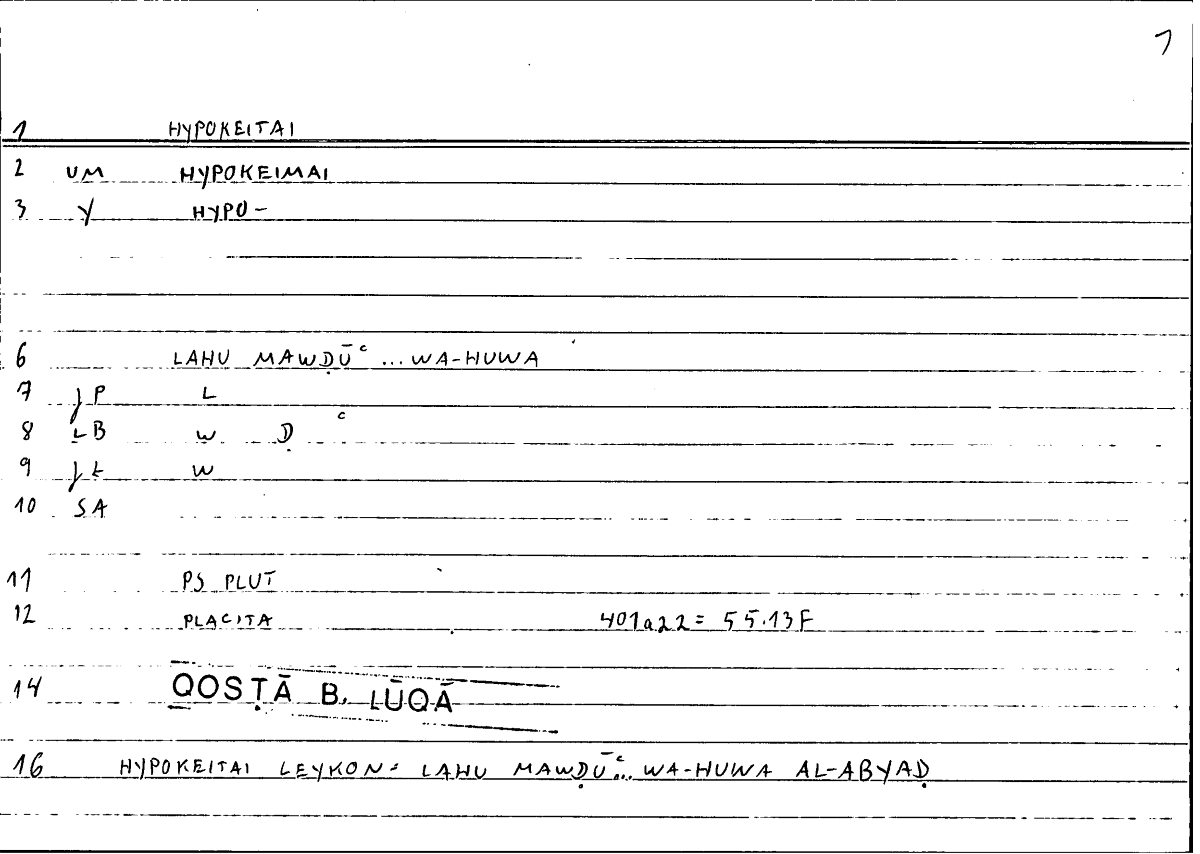 1
1 HYPOKEITAI
2 UM HYPOKEIMAI
3 Y HYPO-
6 LAHU MAWḌŪʿ ... WA-HUWA
7 JP L
8 ŁB W Ḍ ʿ
9 JŁ W
10 SA
11 PS PLUT
12 PLACITA 401a22 = 55.13F
14 QOSṬĀ B. LŪQĀ
16 HYPOKEITAI LEYKON = LAHU MAWḌŪʿ... WA-HUWA AL-ABYAḌ